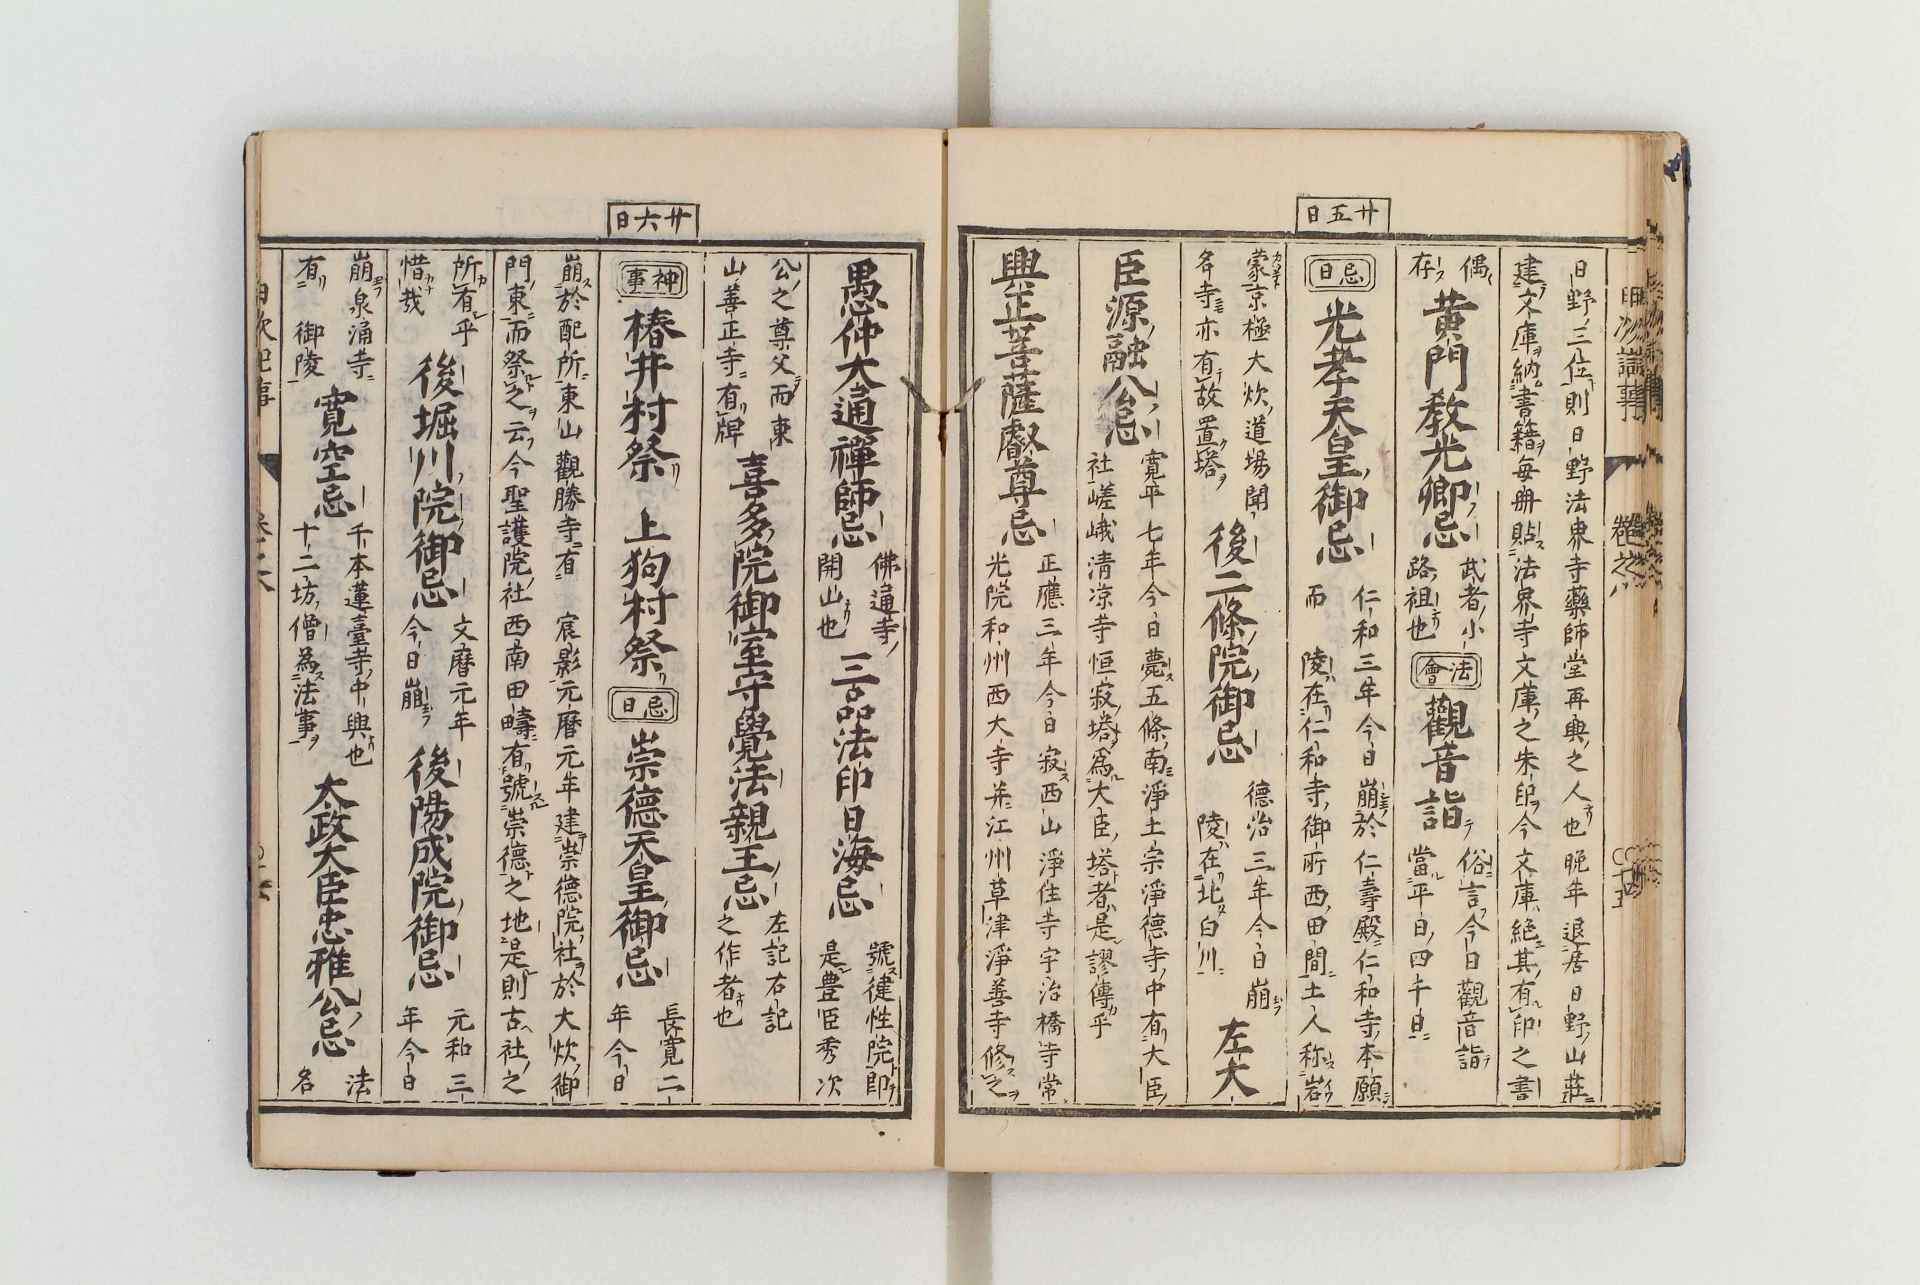 日野三位則日野法界寺藥師堂再興之人也晩年退居日野山莊
建文庫納書籍毎册貼法界寺文庫之朱印今文庫絶其有印之書
偶
存
黄門教光卿忌
武者小
路祖也
法會
觀音詣
俗言今日觀音詣
當平日四千日
廿五日
忌日
光孝天皇御忌
仁和三年今日崩於仁壽殿仁和寺本願
而陵在仁和寺御所西田間土人称岩
蒙京極大炊道場聞
各寺亦有故置塔
後二條院御忌
德治三年今日崩
陵在北白川
左大
臣源融公忌
寛平七年今日薨五條南淨土宗淨德寺中有大臣
社嵯峨清凉寺恒寂塔爲大臣塔者是謬傳乎
興正菩薩叡尊忌
正應三年今日寂西山淨住寺宇治橋寺常
光院和州西大寺并江州草津淨善寺修之
愚仲大通禪師忌
佛通寺
開山也
三品法印日海忌
號健性院即
是豊臣秀次
公之尊父而東
山善正寺有牌
喜多院御室守覺法親王忌
左記右記
之作者也
廿六日
神事
椿井村祭
上狗村祭
忌日
崇德天皇御忌
長寛二
年今日
崩於配所東山觀勝寺有宸影元暦元年建崇德院社於大炊御
門東而祭之云今聖護院社西南田疇有號崇德之地是則古社之
所有乎
惜哉
後堀川院御忌
文暦元年
今日崩
後陽成院御忌
元和三
年今日
崩泉涌寺
有御陵
寛空忌
千本蓮臺寺中興也
十二坊僧為法事
大政大臣忠雅公忌
法
名